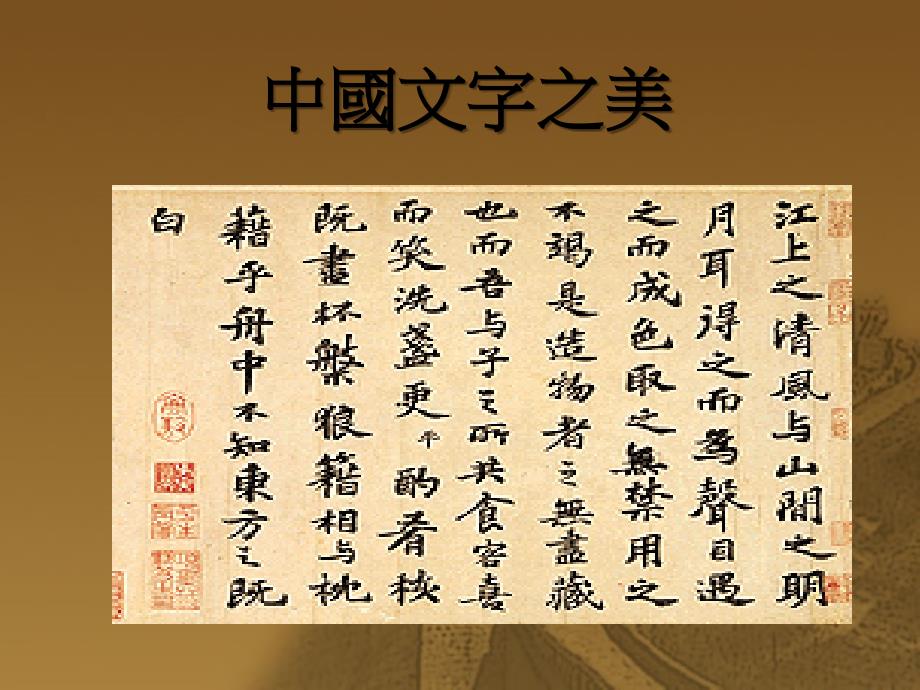 中國文字之美
江上之清風与山間之明
月耳得之而為聲目遇
之而成色取之無禁用之
不竭是造物者之無盡藏
也而吾与子之所共食客喜
而笑洗盞更平酌肴核
既盡杯槃狼藉相与枕
藉乎舟中不知東方之既
白